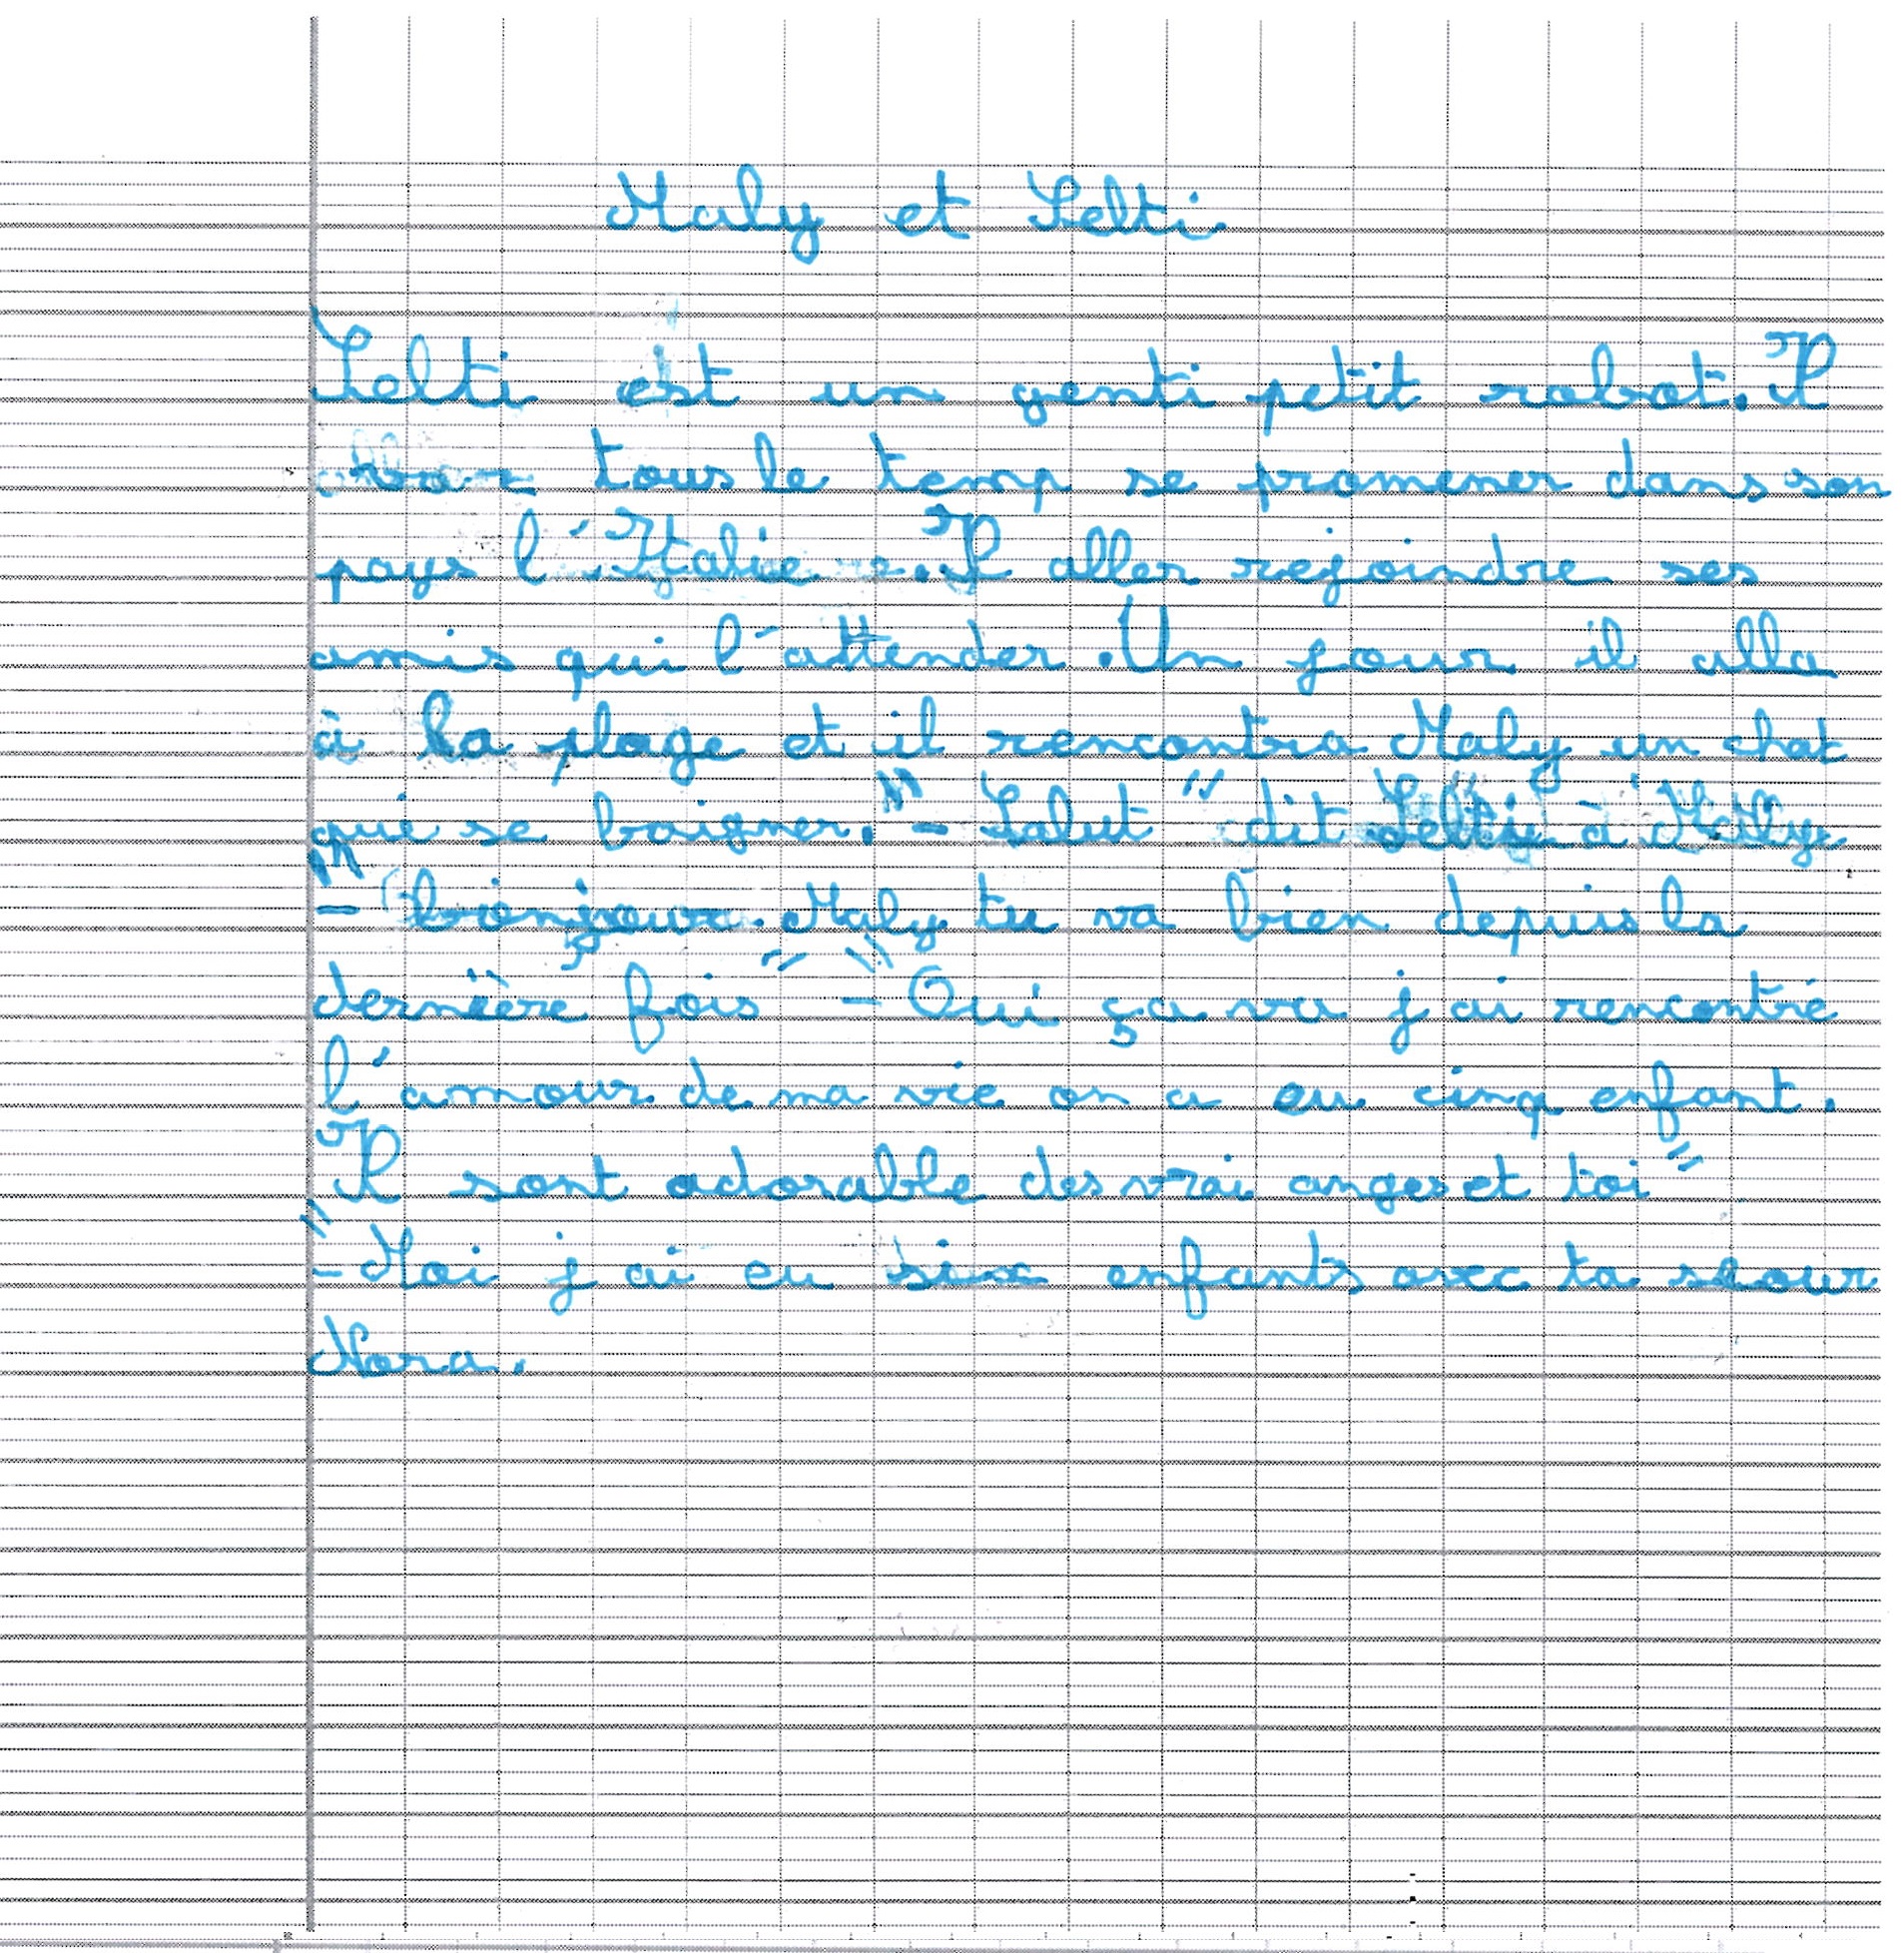 Maly et Selti.
Selti est un genti petit robot. Il
tous le temp se promener dans son
pays l'Italie. Il aller rejoindre ses
amis qui l'attender. Un jour il alla
à la plage et il rencontra Maly un chat
que se baigner. "- Salut" dit Selti à Maly.
"- bonjour Maly tu va bien depuis la
dernière fois" "- Oui ça va j'ai rencontré
l'amour de ma vie on a eu cinq enfant.
Il sont adorable des vrai anges et toi"
"- Moi j ai eu six enfants avec ta seour
Nora.